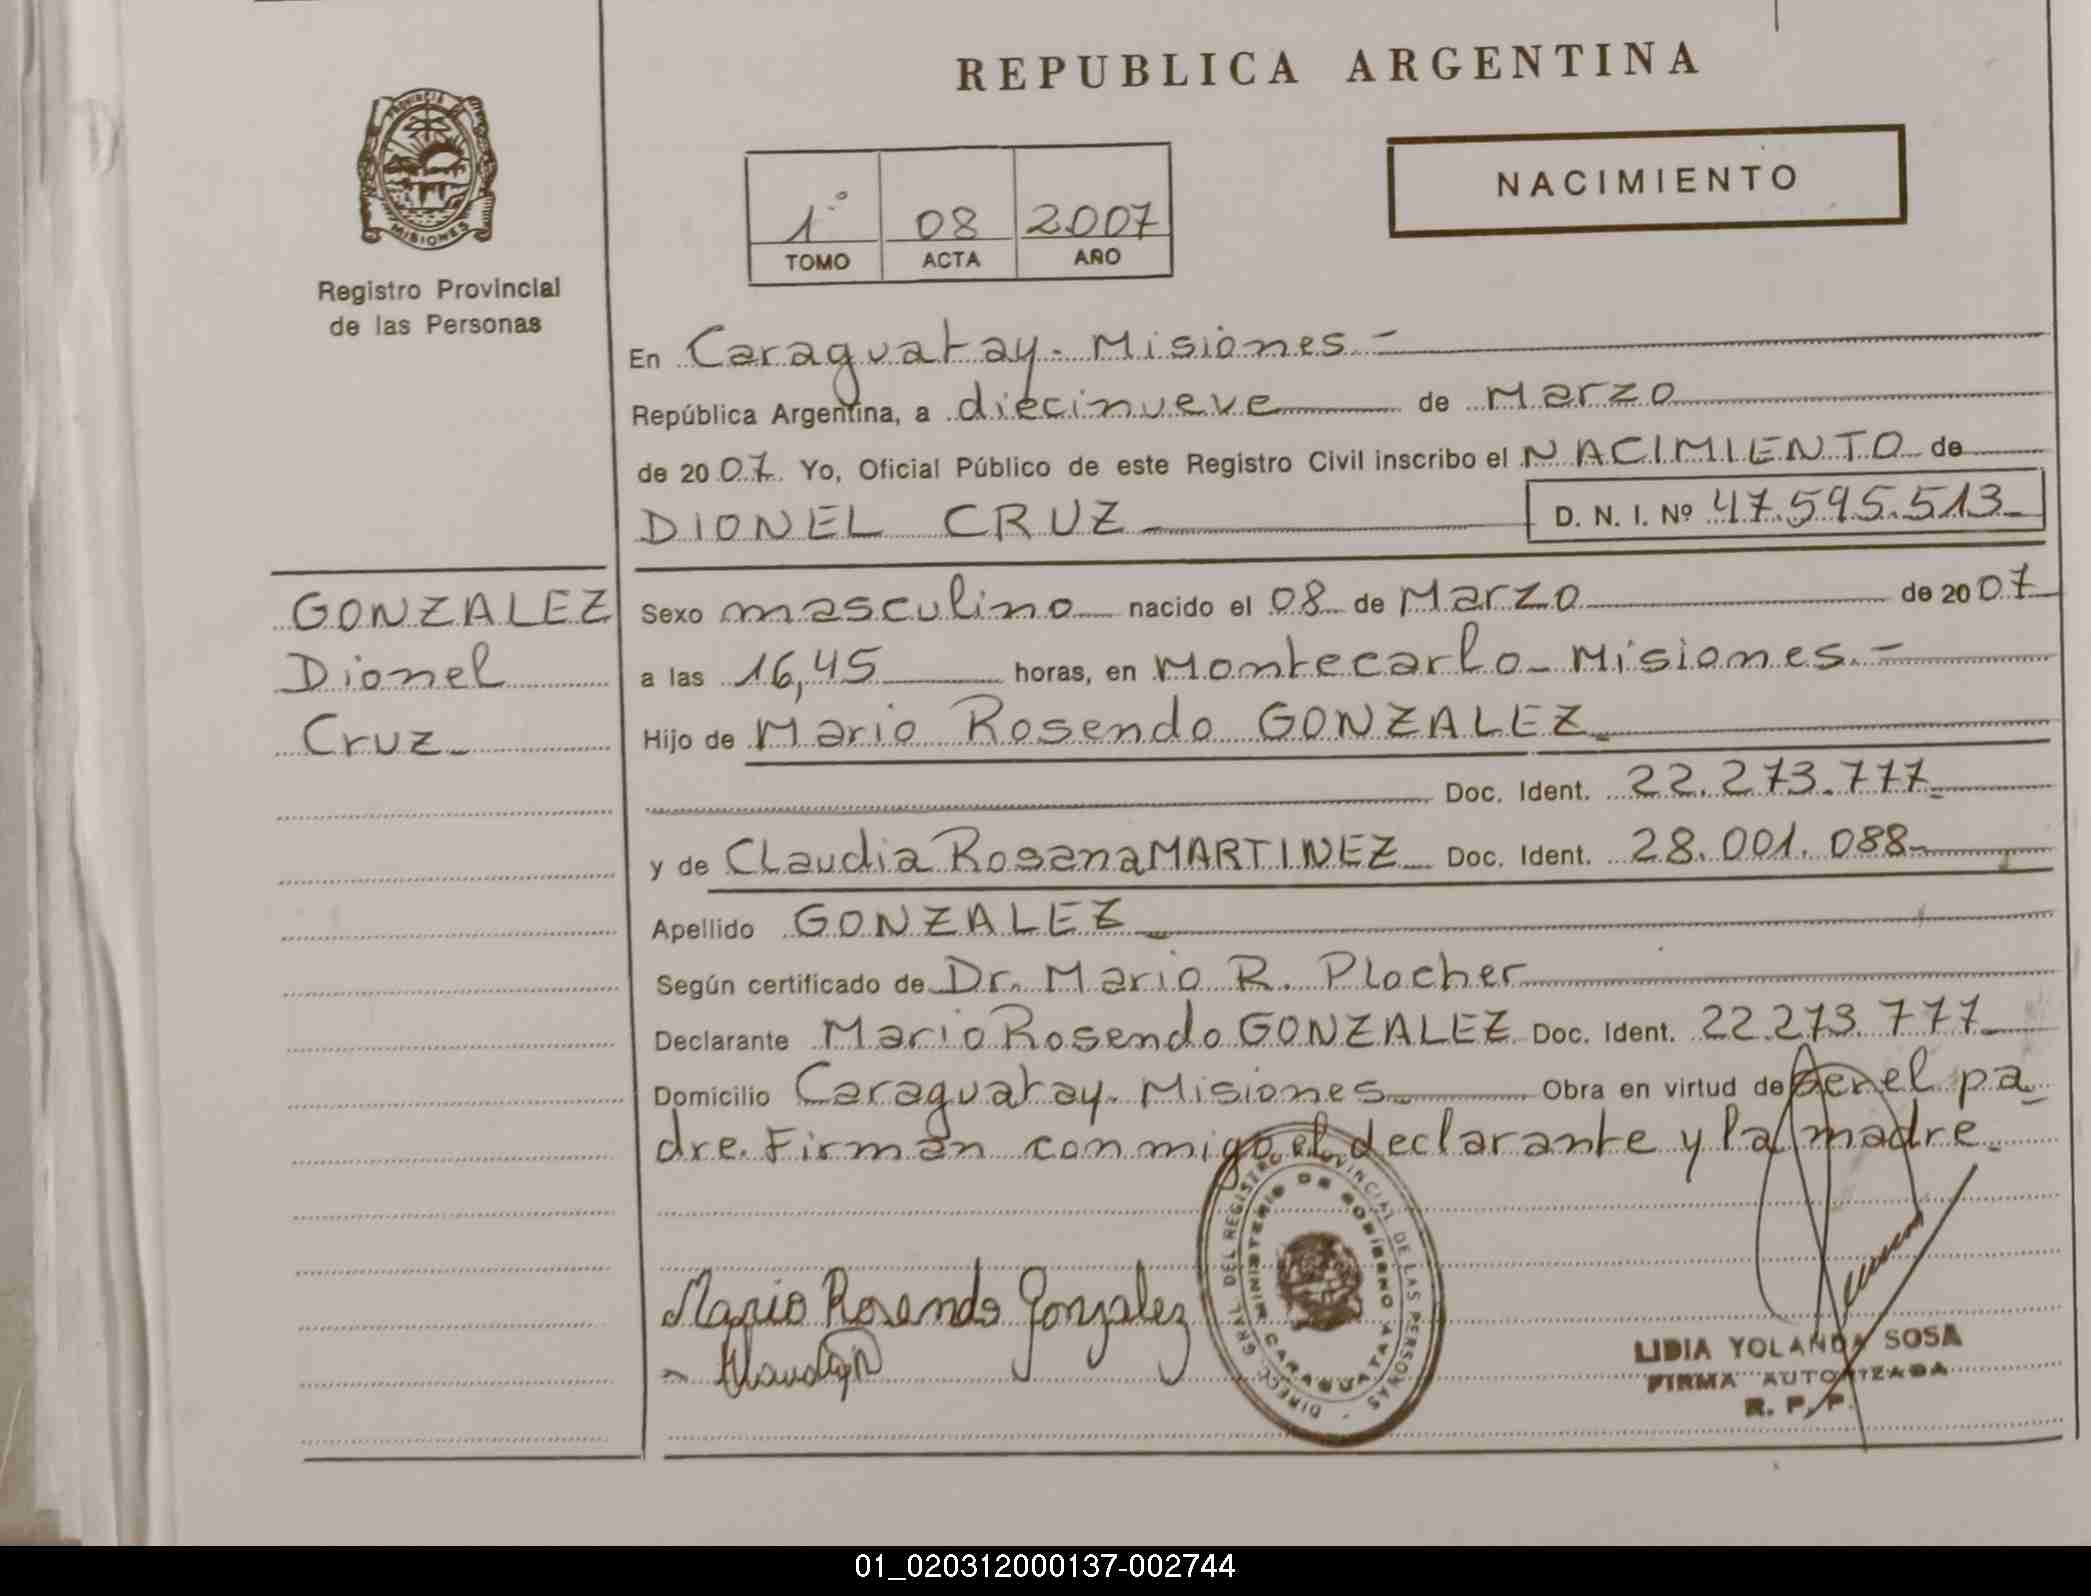 REPUBLICA ARGENTINA
PROVINCIA
MISIONES
Registro Provincial
de las Personas
NACIMIENTO
1º 08 2007
TOMO ACTA AÑO
En Caraguatay - Misiones -
República Argentina, a diecinueve de Marzo
de 2007. Yo, Oficial Público de este Registro Civil inscribo el NACIMIENTO de
DIONEL CRUZ D. N. I. Nº 47.595.513
GONZALEZ
Dionel
Cruz
Sexo masculino nacido el 08 de Marzo de 2007
a las 16,45 horas, en Montecarlo - Misiones -
Hijo de Mario Rosendo GONZALEZ
Doc. Ident. 22.273.777
y de Claudia Rosana MARTINEZ Doc. Ident. 28.001.088
Apellido GONZALEZ
Según certificado de Dr. Mario R. Plocher
Declarante Mario Rosendo GONZALEZ Doc. Ident. 22.273.777
Domicilio Caraguatay - Misiones Obra en virtud de ser el pa
dre. Firman conmigo el declarante y la madre.
Mario Rosendo Gonzalez
DIRECC. GRAL. DEL REGISTRO PROVINCIAL DE LAS PERSONAS
MINISTERIO DE GOBIERNO
CARAGUATAY
LIDIA YOLANDA SOSA
FIRMA AUTORIZADA
R. P. P.
01_020312000137-002744